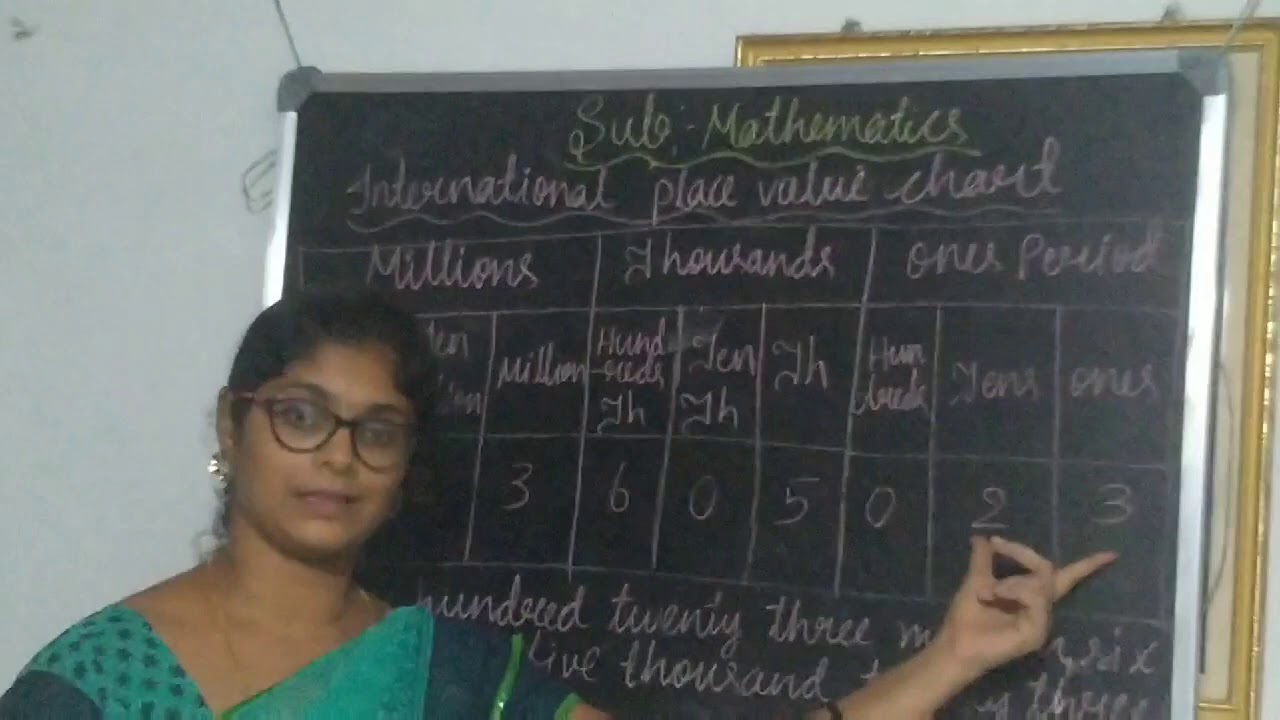 Sub:- Mathematics
International place value chart
Millions Thousands ones Period
Million Hund -reds Th Ten Th Th Hun dreds Tens ones
3 6 0 5 0 2 3
hundred twenty three six
five thousand three